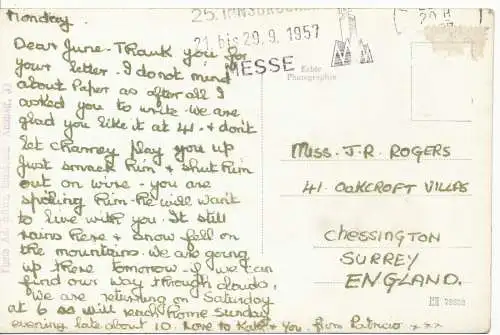 Monday.
Dear June. Thank you for
your letter. I do not mind
about Paper as after all I
asked you to write. We are
glad you like it at 41. & don't
let Charney play you up
Just smack him & shut him
out on wire. you are
spoiling him. he will want
to live with you. It still
rains here & snow fell on
the mountains. We are going
up there tomorrow if we can
find our way through clouds,
We are returning on Saturday
at 6 so will reach home Sunday
evening late about 10. Love to Kate & You.
21. bis 29. 9. 1957
MESSE
Echte
Photographie
Miss. J. R. ROGERS
41. OAKCROFT VILLAS
Chessington
SURREY
ENGLAND.